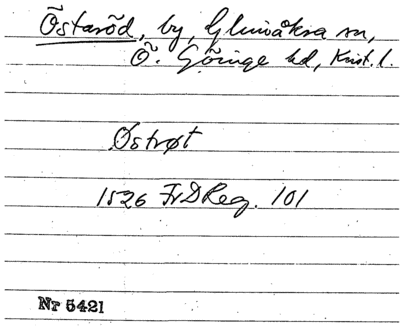 Östaröd, by, Glimåkra sn,
Ö. Göinge hd, Krist. l.
Østrøt
1526 FrDReg. 101
Nr 5421